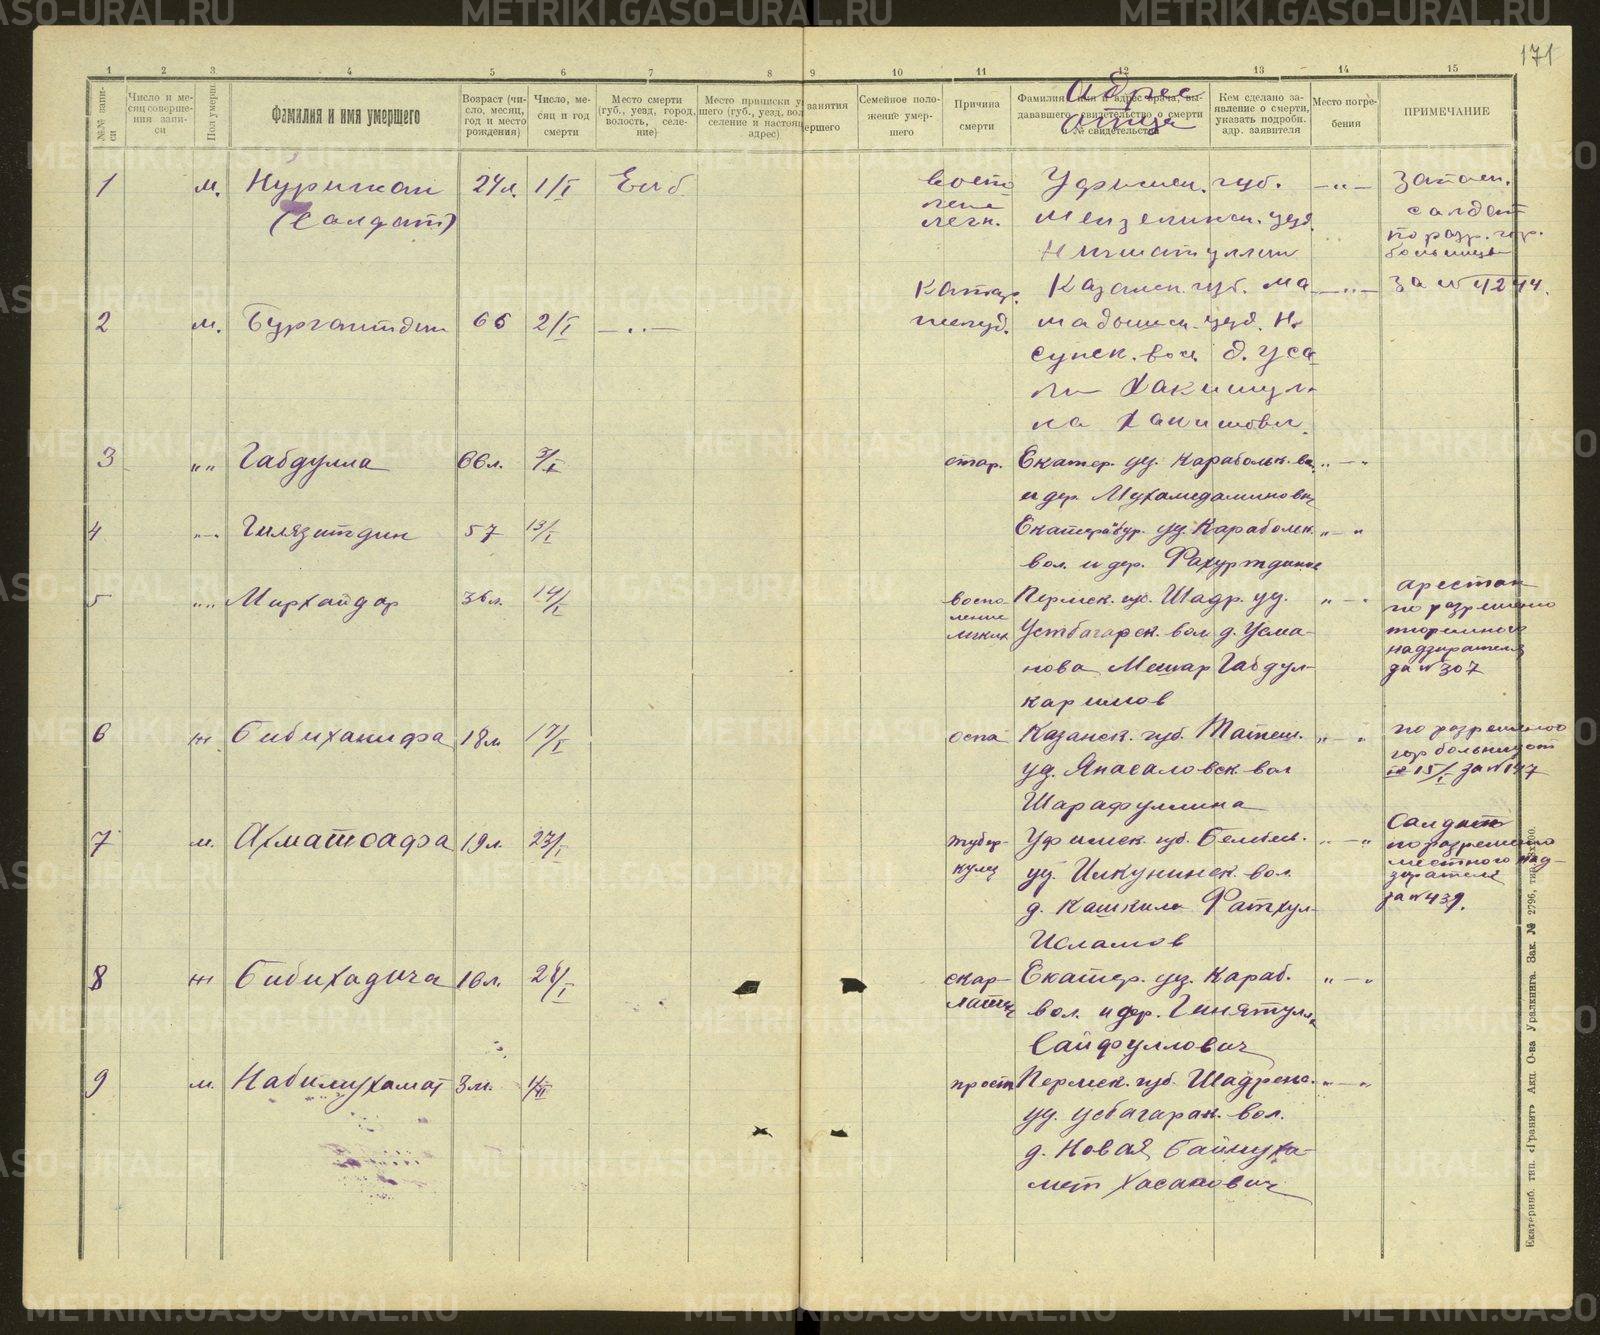 171
1 2 3 4 5 6 7 8 9 10 11 12 13 14 15
№№ запи-
си
Число и ме-
сяц соверше-
ния запи-
си
Пол умерш.
Фамилия и имя умершего
Возраст (чи-
сло, месяц,
год и место
рождения)
Число, ме-
сяц и год
смерти
Место смерти
(губ., уезд, город,
волость, селе-
ние)
Место приписки у
шего (губ., уезд, вол
селение и настоящ
адрес)
занятия
ершего
Семейное поло-
жение умер-
шего
Причина
смерти
Фамилия, имя и адрес врача, вы-
дававшего свидетельство о смерти
№ свидетельства
Адрес
отца
Кем сделано за-
явление о смерти,
указать подробн.
адр. заявителя
Место погре-
бения
ПРИМЕЧАНИЕ
1 м. Нуришан 24 л. 1/I Екб
(Салдат)
воспа
ление
легк.
Уфимск. губ.
Мензелинск. уезд.
Нигматуллин
—"—
Запасн.
салдат
по разр. гор.
больницы
за № 4244.
2 м. Бургантдин 66 2/I —"—
Катар.
желуд.
Казанск. губ. Ма
мадышск. уезд. Н.
сунск. вол. д. Уса
ли Хакимул.
ла Хакимовл.
—"—
3 "" Габдулла 66 л. 3/I
стар.
Екатер. уу. Карабольк. во.
и дер. Мухамедаминовн
"—"
4 "—" Гилязитдин 57 13/I
Екатеринбур. уу. Караболск.
вол. и дер. Фахуртдинов
"—"
5 "" Мирхайдар 36 л. 14/I
воспа-
ление
легких
Пермск. губ. Шадр. уу.
Устбагарск. вол. д. Усма-
нова Мешар Габдул-
каримов
"—"
арестан
по разрешению
тюремного
надзирателя
за № 307
6 ж Бибиханифа 18 л. 17/I
оспа
Казанск. губ. Татеш.
уу. Янасаловск. вол
Шарафуллина
"—"
по разрешению
гор больницы от
15/I за № 147
7 м. Ахматсафа 19 л. 23/I
тубер-
кулез
Уфимск. губ. Белебев.
уу. Илкунинск. вол.
д. Кашкила Фатхул-
Исламов
"—"
Салдат
по разрешению
местного над-
зирателя
за № 439.
8 ж Бибихадича 16 л. 28/I
скар-
латин
Екатер. уу. Караб.
вол. и дер. Гинятулла
Сайфуллович
"—"
9 м. Набимухамат 3 м. 1/II
прост
Пермск. губ. Шадренс.
уу. Усбагаряк. вол.
д. Новая Баймуха-
мет Хасанович
"—"
Екатеринб. тип. «Гранит» Акц. О-ва Уралкнига. Зак. № 2796, тир.
METRIKI.GASO-URAL.RU